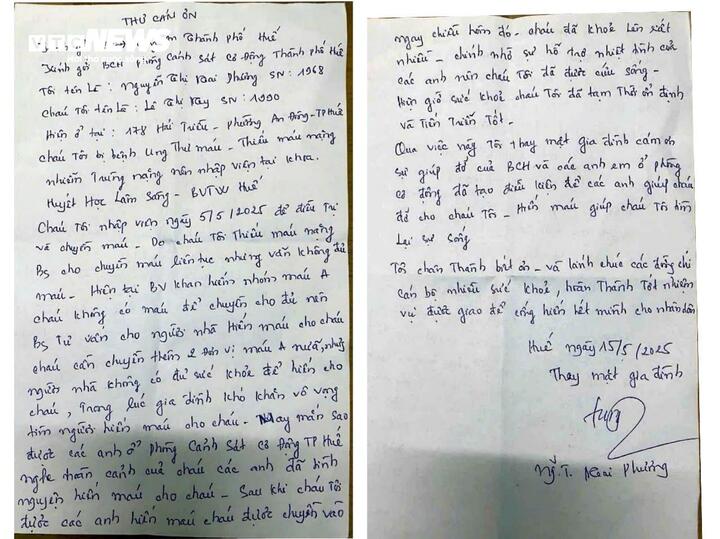 VTC NEWS
THƯ CẢM ƠN
Thành phố Huế
Kính gởi BCH Phòng Cảnh Sát Cơ Động Thành phố Huế
Tôi tên là: Nguyễn Thị Hoài Phương SN: 1968
Cháu Tôi tên là: Lê Thị My SN: 1990
Hiện ở tại: 178 Hải Triều - Phường An Đông - TP Huế
cháu Tôi bị bệnh Ung Thư máu - Thiếu máu nặng
nhiễm Trùng nặng nên nhập viện tại khoa.
Huyết Học Lâm Sàng - BVTW Huế
Cháu Tôi nhập viện ngày 5/5/2025 để điều Trị
và chuyền máu - Do cháu Tôi Thiếu máu nặng
BS cho chuyền máu liên tục nhưng vẫn không đủ
máu - Hiện tại BV khan hiến nhóm máu A
cháu không có máu để chuyền cho đủ nên
BS Tư vấn cho người nhà Hiến máu cho cháu
cháu cần chuyền thêm 2 đơn vị máu A nữa, nhưng
người nhà không có đủ sức khỏe để hiến cho
cháu, Trong lúc gia đình khó khăn vô vọng
tìm người hiến máu cho cháu - May mắn sao
được các anh ở Phòng Cảnh Sát Cơ Động TP Huế
nghe hoàn cảnh của cháu các anh đã tình
nguyện hiến máu cho cháu - Sau khi cháu Tôi
được các anh hiến máu cháu được chuyền vào
ngay chiều hôm đó - cháu đã khoẻ lên rất
nhiều - chính nhờ sự hổ trợ nhiệt tình của
các anh nên cháu Tôi đã được cứu sống -
Hiện giờ sức khoẻ cháu Tôi đã tạm Thời ổn định
và Tiến Triển Tốt.
Qua việc này Tôi thay mặt gia đình cảm ơn
sự giúp đở của BCH và các anh em ở phòng
cơ động đã tạo điều kiện để các anh giúp
đở cho cháu Tôi - Hiến máu giúp cháu Tôi tìm
Lại sự sống
Tôi chân Thành biết ơn - và kính chúc các đồng chí
cán bộ nhiều sức khoẻ, hoàn Thành Tốt nhiệm
vụ được giao để cống hiến hết mình cho nhân dân
Huế ngày 15/5/2025
Thay mặt gia đình
Ng. T. Hoài Phương